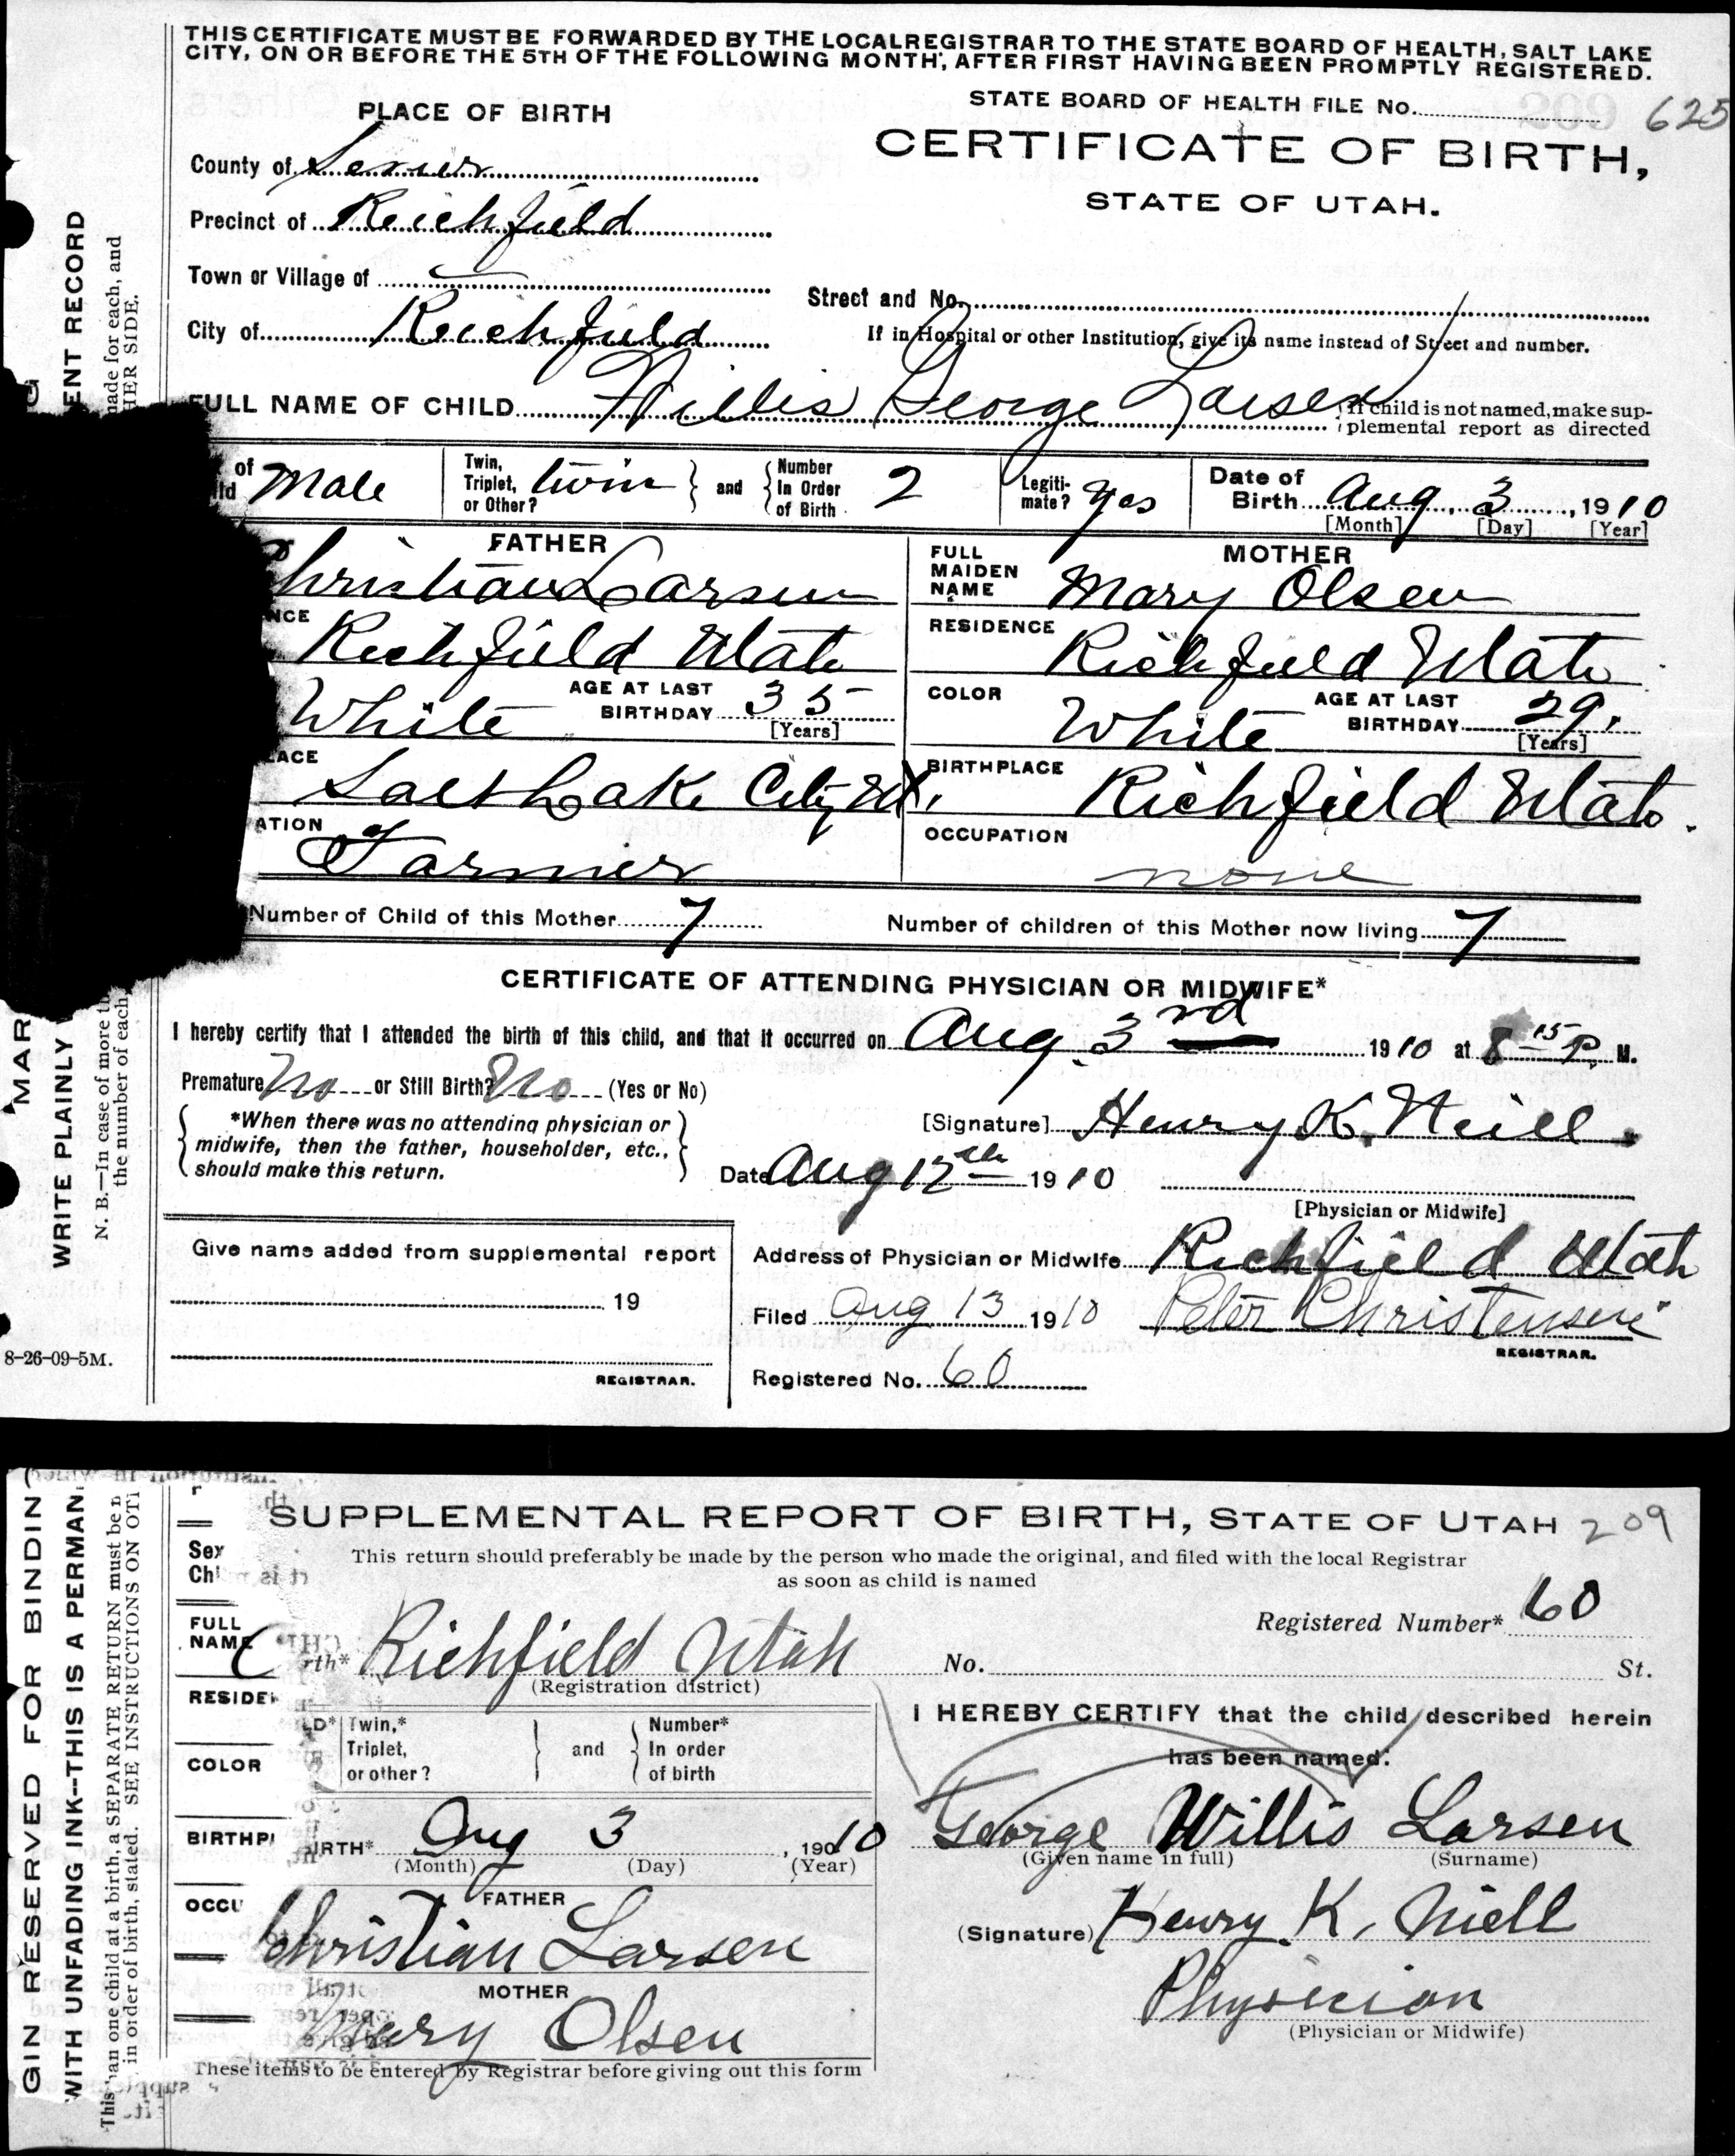 THIS CERTIFICATE MUST BE FORWARDED BY THE LOCAL REGISTRAR TO THE STATE BOARD OF HEALTH, SALT LAKE
CITY, ON OR BEFORE THE 5TH OF THE FOLLOWING MONTH, AFTER FIRST HAVING BEEN PROMPTLY REGISTERED.
PLACE OF BIRTH
STATE BOARD OF HEALTH FILE No. 625
CERTIFICATE OF BIRTH,
STATE OF UTAH.
County of Sevier
Precinct of Richfield
Town or Village of
Street and No.
City of Richfield
If in Hospital or other Institution, give its name instead of Street and number.
FULL NAME OF CHILD Willis George Larsen
If child is not named, make sup-
plemental report as directed
of Male
Twin, Triplet, or Other? twin and Number In Order of Birth 2
Legiti-mate? Yes
Date of Birth Aug. 3, 1910
[Month] [Day] [Year]
FATHER
Christian Larsen
Richfield Utah
White AGE AT LAST BIRTHDAY 35
[Years]
Salt Lake City Ut.
Farmer
MOTHER
FULL MAIDEN NAME Mary Olsen
RESIDENCE Richfield Utah
COLOR White AGE AT LAST BIRTHDAY 29.
[Years]
BIRTHPLACE Richfield Utah.
OCCUPATION none
Number of Child of this Mother 7
Number of children of this Mother now living 7
CERTIFICATE OF ATTENDING PHYSICIAN OR MIDWIFE*
I hereby certify that I attended the birth of this child, and that it occurred on Aug. 3rd 1910 at 8 15 P. M.
Premature No or Still Birth? No (Yes or No)
*When there was no attending physician or
midwife, then the father, householder, etc.,
should make this return.
[Signature] Henry K. Neill
Date Aug 12th 1910
[Physician or Midwife]
Give name added from supplemental report
19
REGISTRAR.
Address of Physician or Midwife Richfield Utah
Filed Aug 13 1910 Peter Christensen
REGISTRAR.
Registered No. 60
8-26-09-5M.
ENT RECORD
made for each, and
HER SIDE.
MAR
WRITE PLAINLY
N. B.—In case of more
the number of each
SUPPLEMENTAL REPORT OF BIRTH, STATE OF UTAH 209
This return should preferably be made by the person who made the original, and filed with the local Registrar
as soon as child is named
Registered Number* 60
rth* Richfield Utah
(Registration district)
No. St.
Twin,* Triplet, or other? and Number* In order of birth
BIRTH* Aug 3, 1910
(Month) (Day) (Year)
FATHER
Christian Larsen
MOTHER
Mary Olsen
These items to be entered by Registrar before giving out this form
I HEREBY CERTIFY that the child described herein
has been named:
George Willis Larsen
(Given name in full) (Surname)
(Signature) Henry K. Niell
Physician
(Physician or Midwife)
Sex
FULL
NAME
COLOR
GIN RESERVED FOR BINDIN
WITH UNFADING INK--THIS IS A PERMAN
an one child at a birth, a SEPARATE RETURN must be
in order of birth, stated. SEE INSTRUCTIONS ON